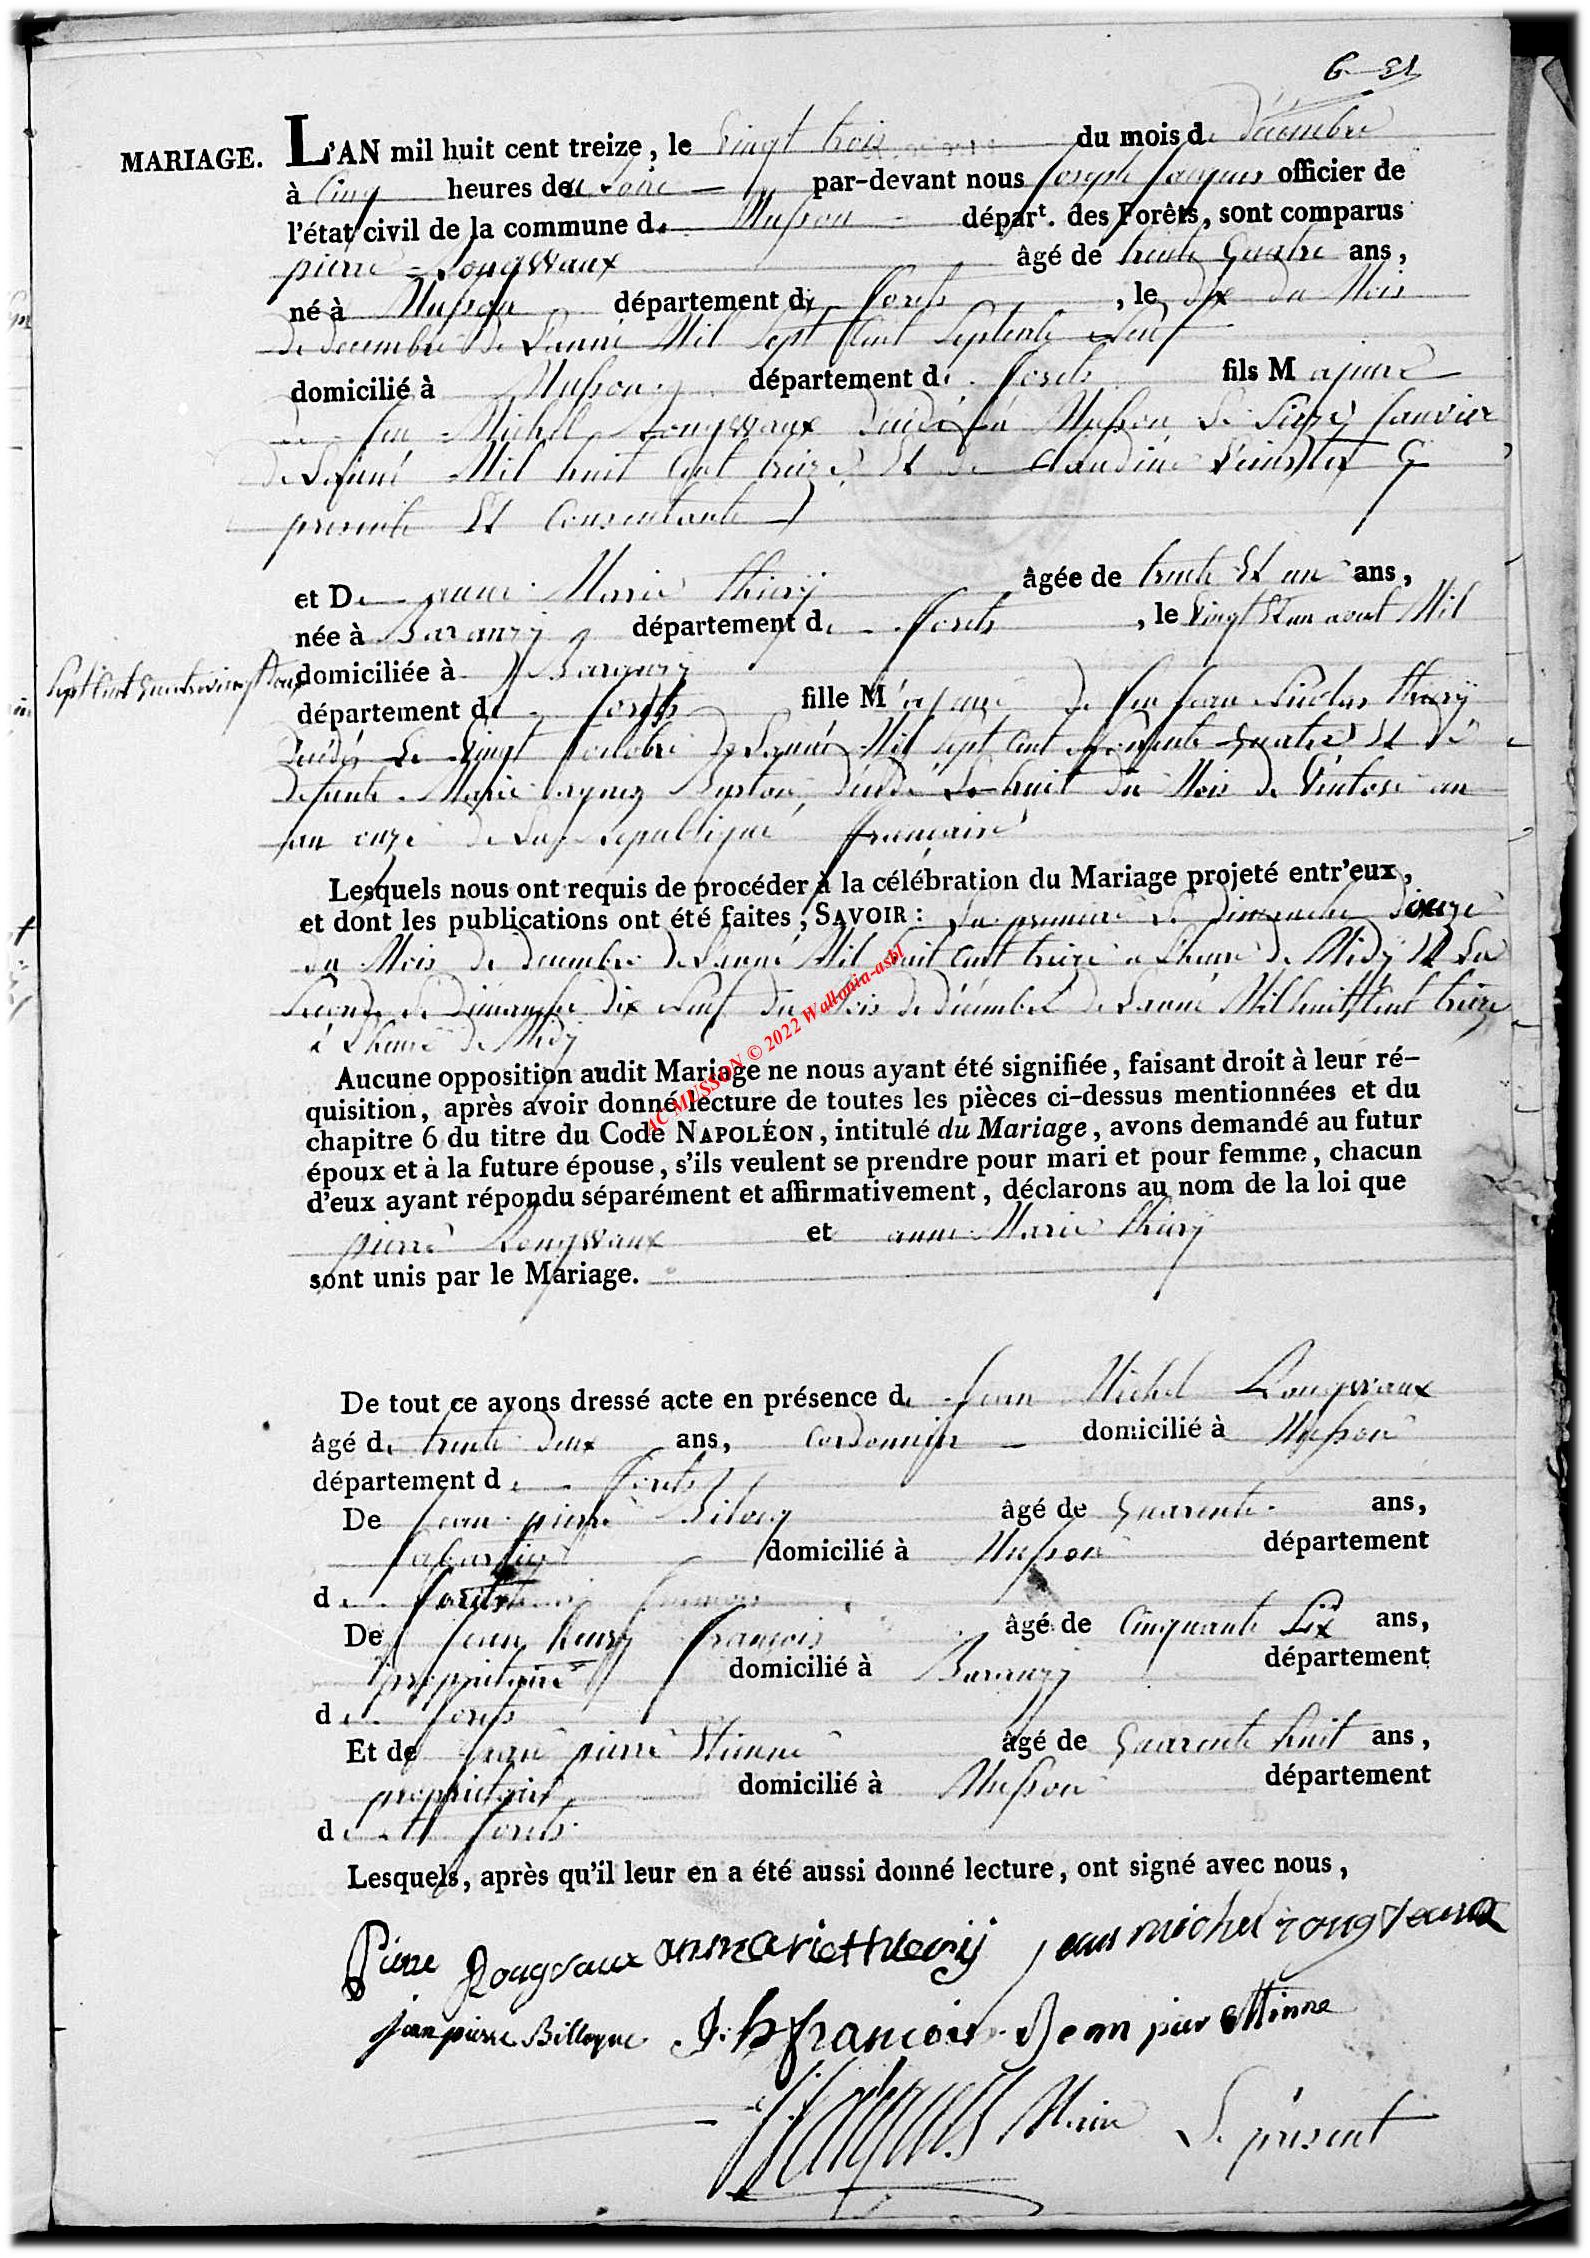 6
MARIAGE. L'AN mil huit cent treize, le Vingt trois du mois de décembre
à Cinq heures du Soire par-devant nous Joseph Jacques officier de
l'état civil de la commune de Musson départ. des Forêts, sont comparus
pierre Rongvaux âgé de trente quatre ans,
né à Musson département de forets, le dix du Mois
de decembre de Lanné Mil Sept Cent Septente neuf
domicilié à Musson département de forets fils Majeure
de feu Michel Rongvaux décédé à Musson le Janvier
de Lanné Mil huit Cent treize Et de Claudine
presente Et Consentante
et De anne Marie thiery âgée de trente Et un ans,
née à Baranzy département de forets, le Vingt Et un aout Mil
Sept Cent quatrevingt deux
domiciliée à Baranzy
département de forets fille Majeure de feu Jean Nicolas thiery
décédé le Vingt octobre de Lanné Mil Sept Cent quatre Et de
defunte Marie agnez décédé Le huit du Mois de Ventose an
an onze de La republique francaise
Lesquels nous ont requis de procéder à la célébration du Mariage projeté entr'eux,
et dont les publications ont été faites, SAVOIR : La premiere Le Dimanche douze
du Mois de decembre de Lanné Mil huit Cent treize a Lheure de Midy Et La
Seconde Le Dimanche dix neuf du Mois de décembre de Lanné Mil huit Cent treize
à Lheure de Midy
Aucune opposition audit Mariage ne nous ayant été signifiée, faisant droit à leur ré-
quisition, après avoir donné lecture de toutes les pièces ci-dessus mentionnées et du
chapitre 6 du titre du Code NAPOLÉON, intitulé du Mariage, avons demandé au futur
époux et à la future épouse, s'ils veulent se prendre pour mari et pour femme, chacun
d'eux ayant répondu séparément et affirmativement, déclarons au nom de la loi que
pierre Rongvaux et anne Marie thiery
sont unis par le Mariage.
AC MUSSON © 2022 Wallonia-asbl
De tout ce avons dressé acte en présence de Jean Michel Rongvaux
âgé de trente deux ans, cordonnier domicilié à Musson
département de forets
De Jean pierre Bilocq âgé de quarente ans,
domicilié à Musson département
de forets
De Jean henry françois âgé de Cinquante Six ans,
propriétaire domicilié à Baranzy département
de forets
Et de Jean pierre Etienne âgé de quarente huit ans,
proprietaire domicilié à Musson département
de forets
Lesquels, après qu'il leur en a été aussi donné lecture, ont signé avec nous,
Pierre Rongvaux anmariethiery jean michel rongvaux
jean pierre Billocque J h francois Jean pier ettinne
J Jacques Maire Le présent